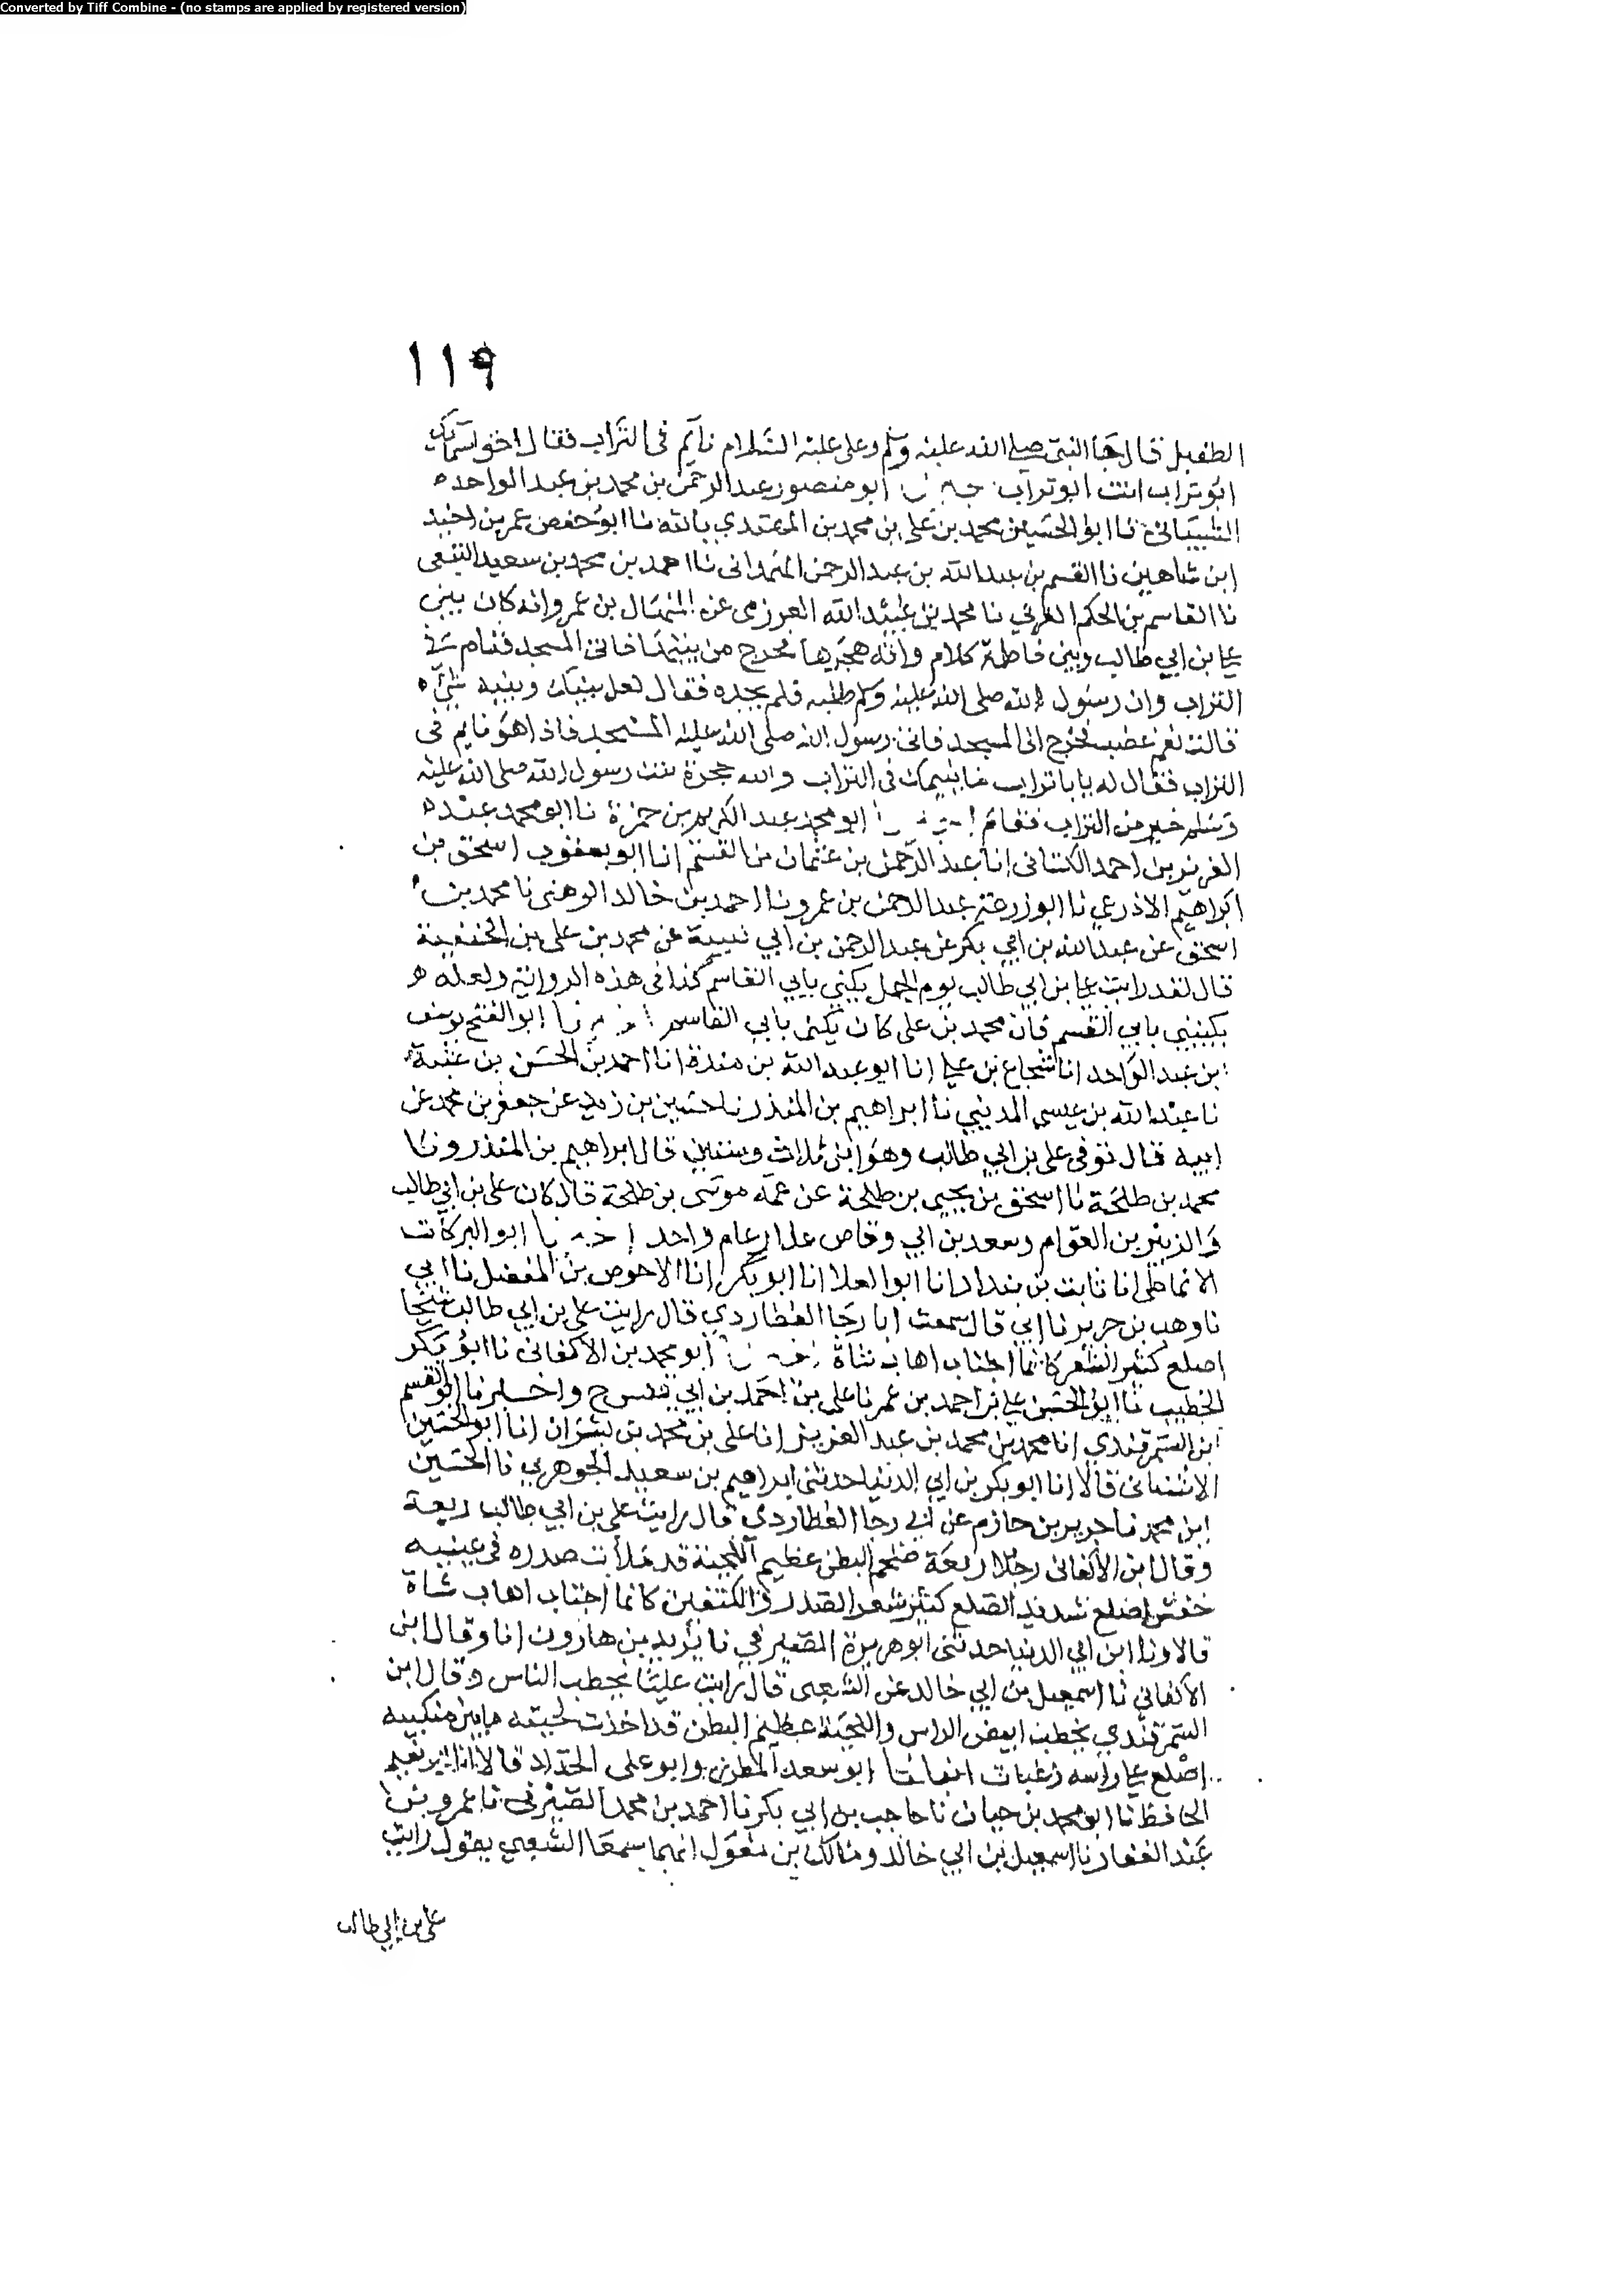 Converted by Tiff Combine - (no stamps are applied by registered version)
١١٩
الطفيل قال جا النبي صلى الله عليه وسلم وعلى عليه السلام نايم في التراب فقال احق اسمائك
ابو تراب انت ابو تراب ابو منصور عبد الرحمن بن محمد بن عبد الواحد
الشيباني نا ابو الحسين محمد بن علي بن محمد بن المهتدي بالله نا ابو حفص عمر بن احمد
ابن شاهين نا القسم بن عبد الله بن عبد الرحمن الهمداني نا احمد بن محمد بن سعيد
نا القاسم بن الحكم العرني نا محمد بن عبيد الله العرزمي عن المنهال بن عمرو انه كان بين
علي بن ابي طالب وبين فاطمة كلام وانه هجرها فخرج من بيتها فاتى المسجد فنام في
التراب وان رسول الله صلى الله عليه وسلم طلبه فلم يجده فقال لعل بينك وبينه شيء
قالت نعم غضب فخرج الى المسجد فاتى رسول الله صلى الله عليه المسجد فاذا هو نايم في
التراب فقال له يا با تراب ما ينيمك في التراب والله حجرة بنت رسول الله صلى الله عليه
وسلم خير من التراب فقام ابو محمد عبد الكريم بن حمزة نا ابو محمد عبد
العزيز بن احمد الكتاني انا عبد الرحمن بن عثمان بن القسم انا ابو يعقوب اسحق بن
ابراهيم الاذرعي نا ابو زرعة عبد الرحمن بن عمرو نا احمد بن خالد الوهبي نا محمد بن
اسحق عن عبد الله بن ابي بكر عن عبد الرحمن بن ابي عن محمد بن علي بن الحنفية
قال لقد رايت علي بن ابي طالب يوم الجمل يكني بابي القاسم كذا في هذه الرواية ولعله
يكنيني بابي القسم فان محمد بن علي كان يكنى بابي القاسم اخبرنا ابو الفتح يوسف
بن عبد الواحد انا شجاع بن علي انا ابو عبد الله بن مندة انا احمد بن الحسن بن عتبة
نا عبد الله بن عيسى المديني نا ابراهيم بن المنذر نا حسين بن زيد عن جعفر بن محمد عن
ابيه قال توفى علي بن ابي طالب وهو ابن ثلاث وستين قال ابراهيم بن المنذر ونا
محمد بن طلحة نا اسحق بن يحيى بن طلحة عن عمه موسى بن طلحة قال كان علي بن ابي طالب
والزبير بن العوام وسعد بن ابي وقاص عذار عام واحد اخبرنا ابو البركات
الانماطي انا ثابت بن بندار انا ابو العلا انا ابو بكر انا الاحوص بن المفضل نا ابي
نا وهب بن جرير نا ابي قال سمعت ابا رجا العطاردي قال رايت علي بن ابي طالب شيخا
اصلع كثير الشعر كانما اجتاب اهاب شاة ابو محمد بن الاكفاني نا ابو بكر
الخطيب نا ابو الحسن علي بن احمد بن عمر نا علي بن احمد بن ابي قيس ح واخبرنا ابو القسم
ابن السمرقندي انا محمد بن محمد بن عبد العزيز انا علي بن محمد بن بشران انا ابو الحسين
الاشناني قالا انا ابو بكر بن ابي الدنيا حدثني ابراهيم بن سعيد الجوهري نا الحسين
ابن محمد نا جرير بن حازم عن ابي رجا العطاردي قال رايت علي بن ابي طالب ربعة
وقال ابن الاكفاني رجلا ربعة ضخم البطن عظيم اللحية قد ملات صدره في عينيه
خفش اصلع شديد الصلع كثير شعر الصدر والكتفين كانما اجتاب اهاب شاة
قالا ونا ابن ابي الدنيا حدثني ابو هريرة الصيرفي نا يزيد بن هارون انا وقال ابن
الاكفاني نا اسمعيل بن ابي خالد عن الشعبي قال رايت عليا يخطب الناس وقال ابن
السمرقندي يخطب ابيض الراس واللحية عظيم البطن قد اخذت لحيته ما بين منكبيه
اصلع علي راسه زغبات ابو سعد المطرز وابو علي الحداد قالا انا ابو نعيم
الحافظ نا ابو محمد بن حيان نا حاجب بن ابي بكر نا احمد بن محمد الصيرفي نا عمرو بن
عبد الغفار نا اسمعيل بن ابي خالد ومالك بن مغول انهما سمعا الشعبي يقول رايت
علي بن ابي طالب